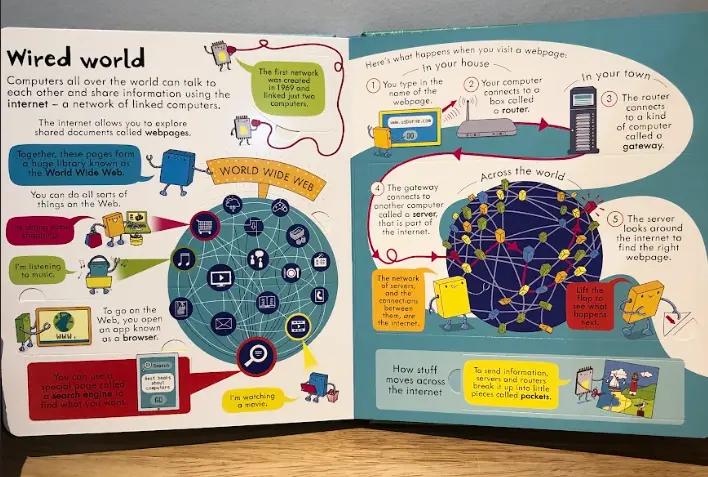 Wired world
Computers all over the world can talk to
each other and share information using the
internet – a network of linked computers.
The first network
was created
in 1969 and
linked just two
computers.
The internet allows you to explore
shared documents called webpages.
Together, these pages form
a huge library known as
the World Wide Web.
WORLD WIDE WEB
You can do all sorts of
things on the Web.
shopping.
I'm listening
to music.
To go on the
Web, you open
an app known
as a browser.
WWW.
You can use a
special page called
a search engine to
find what you want.
Search
Best books
about
computers
GO
I'm watching
a movie.
Here's what happens when you visit a webpage:
In your house
1 You type in the
name of the
webpage.
GO
2 Your computer
connects to a
box called
a router.
In your town
3 The router
connects
to a kind
of computer
called a
gateway.
4 The gateway
connects to
another computer
called a server,
that is part of
the internet.
Across the world
5 The server
looks around
the internet to
find the right
webpage.
The network
of servers,
and the
connections
between
them, are
the internet.
Lift the
flap to see
what
happens
next.
How stuff
moves across
the internet
To send information,
servers and routers
break it up into little
pieces called packets.